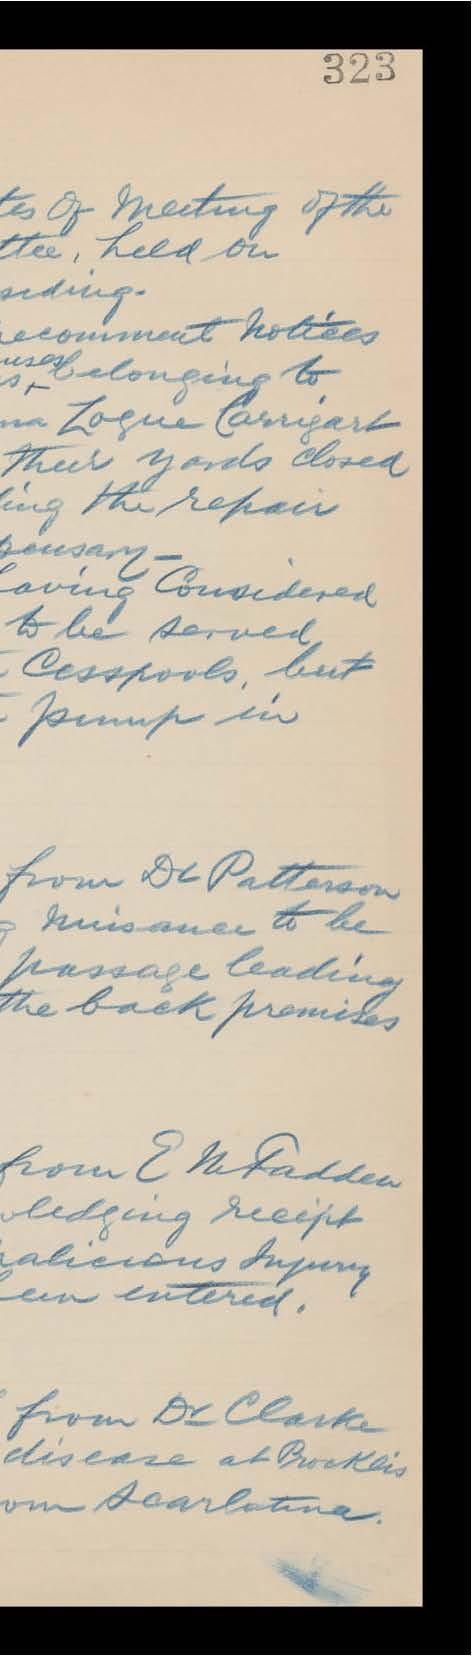 323
tes Of Meeting of the
ttee, held on
siding.
recomment Notices
uses
s, belonging to
na Logue Carrigart
their yards closed
ding the repair
pensary —
aving Considered
to be served
Cesspools, but
pump in
from Dr Patterson
g Nuisance to be
passage leading
the back premises
from E McFadden
wledging receipt
alicious Injury
een entered.
from Dr Clarke
disease at
om Scarlatina.